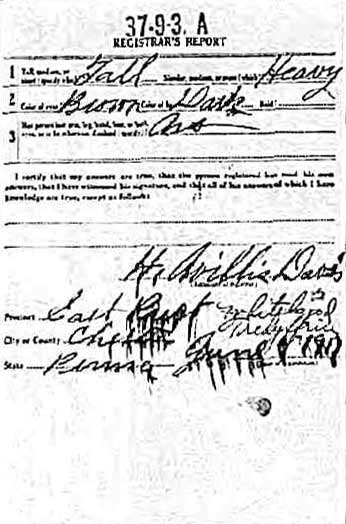 37-9-3. A
REGISTRAR'S REPORT
1 Tall, medium, or short (specify which) Tall Slender, medium, or stout (which) Heavy
2 Color of eyes Brown Color of hair Dark Bald
3 Has person lost arm, leg, hand, foot, or both eyes, or is he otherwise disabled (specify) No
I certify that my answers are true, that the person registered has read his own
answers, that I have witnessed his signature, and that all of his answers of which I have
knowledge are true, except as follows:
H. Willis Davis
(Signature of registrar)
Precinct East
City or County Chester
State Penna June